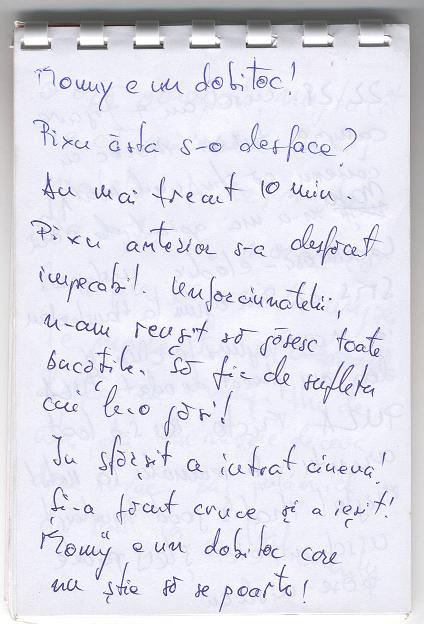 Momy e un dobitoc!
Pixu ăsta s-o desface?
Au mai trecut 10 min.
Pixu anterior s-a desfăcut
impecabil. Unforciunatelii,
n-am reușit să găsesc toate
bucățile. Să fie de sufletu
cui le-o găsi!
În sfârșit a intrat cineva!
Și-a făcut cruce și a ieșit!
Momy e un dobitoc care
nu știe să se poarte!